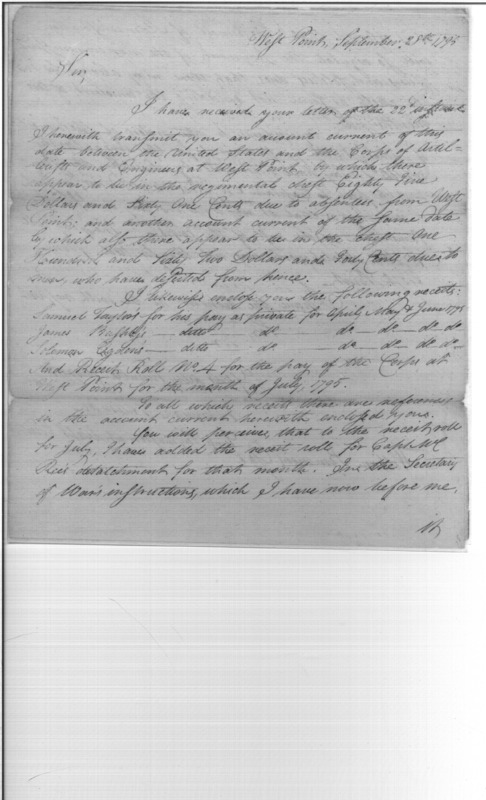 West Point, September, 28th 1795
Sir,
I have received your letter of the 22d instant
I herewith transmit you an account current of this
date between the United States and the Corps of Artil-
lerists and Engineers at West Point, by which there
appear to be in the regimental chest Eighty five
Dollars and Sixty One Cents due to absentees from West
Point; and another account current of the same date
by which also there appear to be in the chest One
Hundred and Sixty Two Dollars and Forty Cents due to
men, who have deserted from hence.
I likewise enclose you the following receipts:
Samuel Taylor's for his pay as private for April, May & June 1795
James ditto do do do do do
Solomon ditto do do do do do
And Receipt Roll No 4 for the pay of the Corps at
West Point for the month of July, 1795.
To all which receipts there are references
in the account current herewith enclosed you.
You will perceive, that to the receipt roll
for July, I have added the receipt roll for Capt.
detachment for that month. In the Secretary
of War's instructions, which I have now before me,